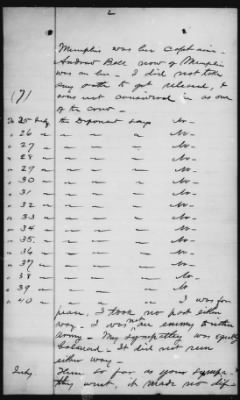 2
Memphis was her Captain -
Andrew Bell now of Memphis
was on her - I did not take
any oath to get released, &
was not considered in as one
of the crew -
(7)
To 25 Intg the Deponent says No -
" 26 " " " " No -
" 27 " " " " No -
" 28 " " " " No -
" 29 " " " " No -
" 30 " " " " No -
" 31 " " " " No -
" 32 " " " " No -
" 33 " " " " No -
" 34 " " " " No -
" 35 " " " " No -
" 36 " " " " No -
" 37 " " " " No -
" 38 " " " " No
" 39 " " " " No -
" 40 " " " " I was for
peace, I took no part either
way - I was not an enemy to either
army - My sympathy was equally
balanced - It did not run
either way -
Intg Then so far as your sympa-
thy went, it made no dif-